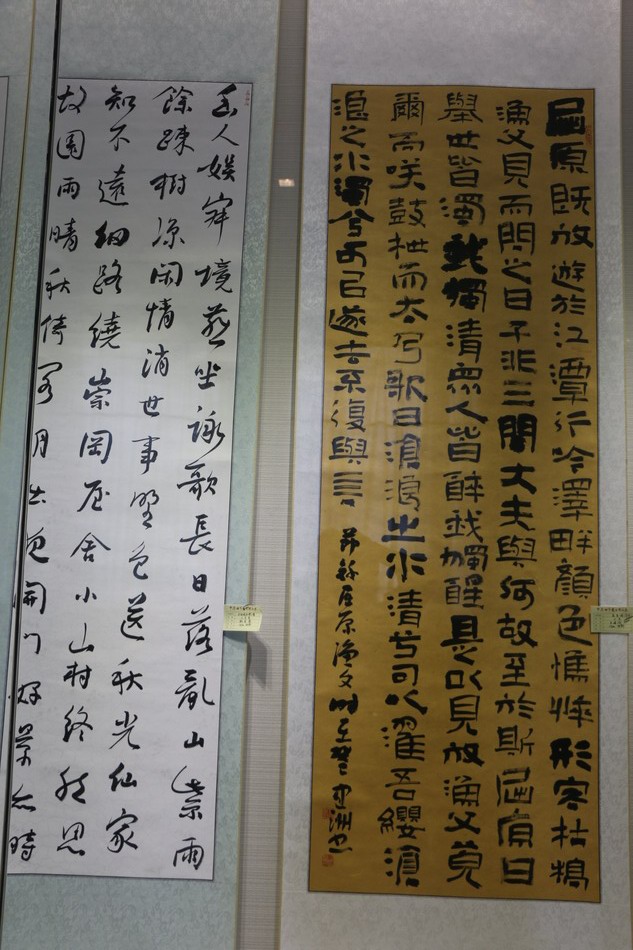 屈原既放遊於江潭行吟澤畔顏色憔悴形容枯槁
漁父見而問之曰子非三閭大夫與何故至於斯屈原曰
舉世皆濁我獨清眾人皆醉我獨醒是以見放漁父莞
爾而咲鼓枻而去兮歌曰滄浪之水清兮可以濯吾纓滄
浪之水濁兮可㠯遂去不復與言
節錄屈原漁父
幽人娛寂境燕坐詠歌長日落亂山紫雨
餘疎樹涼閑情消世事野色送秋光仙家
知不遠細路繞崇岡屋舍小山村終思
故園雨晴秋倚月出開門好景時